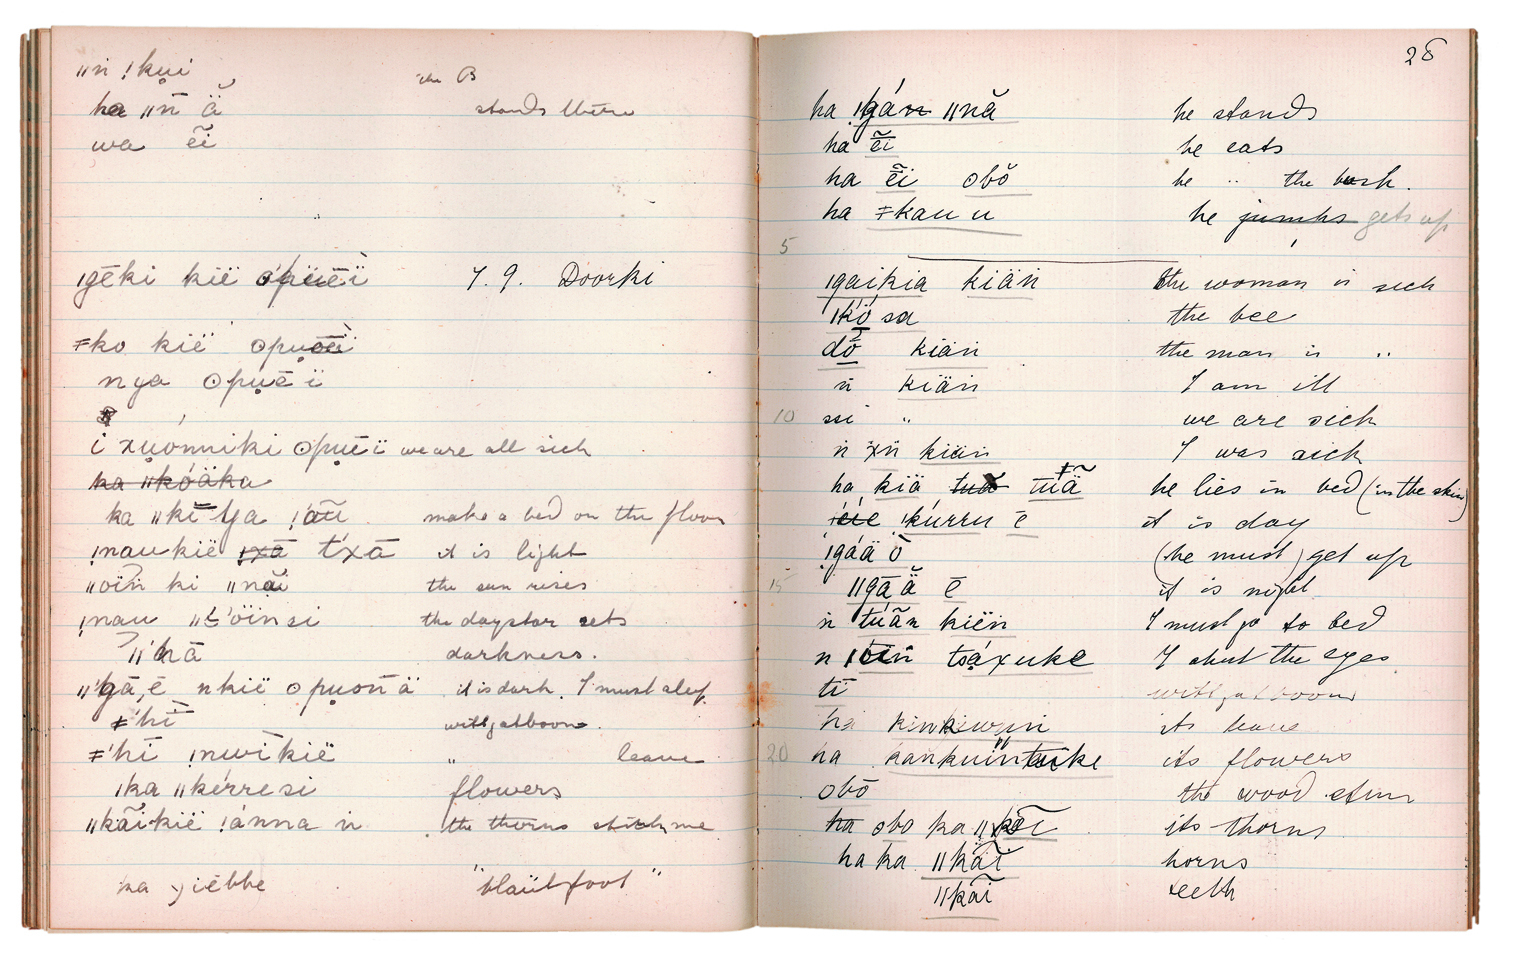 ǁn ǃkụi
ha ǁn̄ ä̆ the B stands there
wa ẽi
ǀgēki kië 7. 9. Doorki
ǂko kië
nya ʘpụēï
i xụónniki ʘpụēï we are all sick
ka ǁkóäka
ka ǁkī ya ǃāū make a bed on the floor
ǃnau kië ǀxā t'xā it is light
ǁöin ki ǁnăi the sun rises
ǃnau öinsi the daystar sets
ǁ'hā darkness.
ǁ'gā, ē nkië ʘpụoñä it is dark. I must sleep
ǂ'hī witgatboom.
ǂ'hī ǃnwìkië " leave
ǃka ǁkérresi flowers
ǁkãikië ǃánna n the thorns stick me
ka "blaütfoot"
28
ha ǁnă he stands
ha ẽi he eats
ha ẽi ʘbŏ he " the bush.
ha ǂkau u he jumps gets up
5
ǀgaikia kiän the woman is sick
ǀkö́sa the bee
dō kiän the man is "
n̄ kiän I am ill
10 si " we are sick
n xn̄ kiän I was sick
ha kiä tuä he lies in bed (in the skin)
ǃkúrru ē it is day
ǃgáä ò (he must) get up
15 ǁgā ä̆ ē it is night
n túãn kiën I must go to bed
n tsáxuke I shut the eyes
tī witgatboom
ha its leave
20 ha its flowers
ʘbō the wood stem
ha ʘbo ka ǁkãĩ its thorns
ha ka ǁkãĩ horns
ǁkãĩ teeth